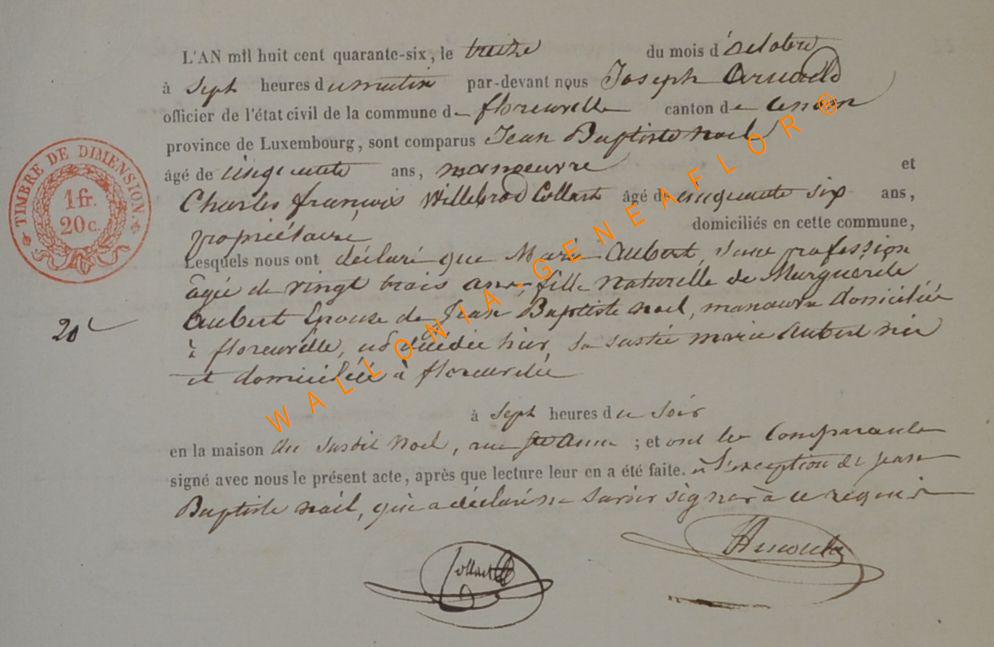 L'AN mil huit cent quarante-six, le treize du mois d'octobre
à Sept heures du matin par-devant nous Joseph Arnould
officier de l'état civil de la commune de florenville canton de
province de Luxembourg, sont comparus Jean Baptiste Noel
âgé de cinquante ans, manoeuvre et
Charles françois Willebrod Collart âgé de cinquante six ans,
propriétaire domiciliés en cette commune,
Lesquels nous ont déclaré que Marie Aubert, sans profession
agée de vingt trois ans, fille naturelle de Marguerite
Aubert Epouse de Jean Baptiste Noel, manoeuvre domiciliée
à florenville, est décédée hier, la susdite marie Aubert née
et domiciliée à florenville
20
à Sept heures du Soir
en la maison du susdit Noel, rue Ste Anne ; et ont les Comparants
signé avec nous le présent acte, après que lecture leur en a été faite. à l'exception de jean
Baptiste Noel, qui a déclaré ne savoir signer à ce requis
Collart
Arnould
TIMBRE DE DIMENSION
1 fr.
20 c.
WALLONIA-GENEAFLOR®